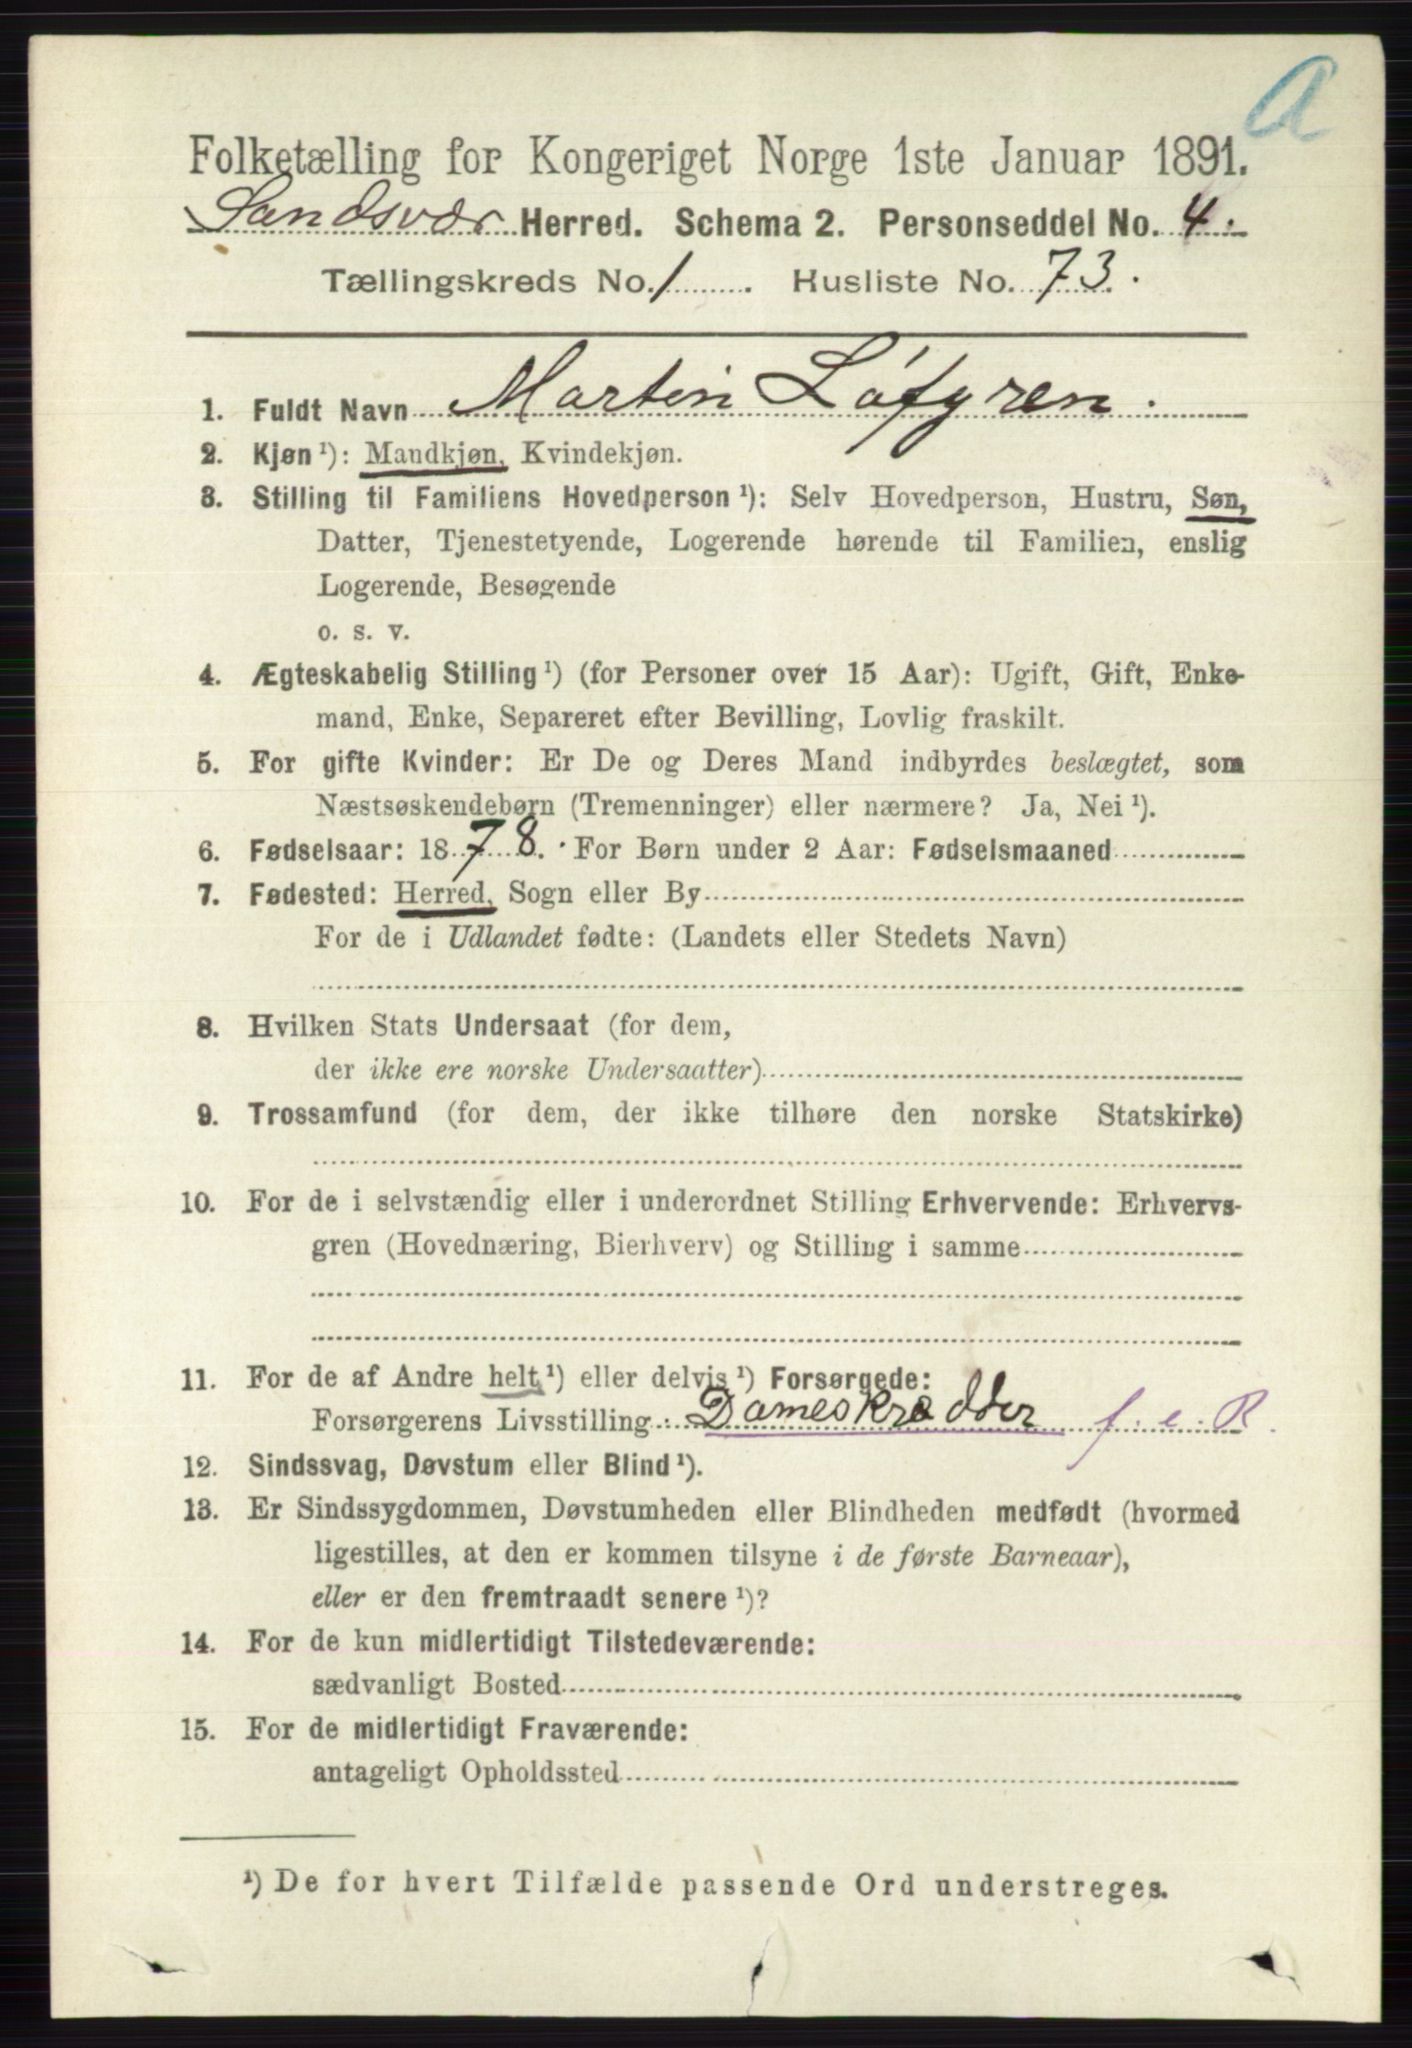 A
Folketælling for Kongeriget Norge 1ste Januar 1891.
Sandsvær Herred. Schema 2. Personseddel No. 4.
Tællingskreds No. 1 . Husliste No. 73.
1. Fuldt Navn Martin Løfgren.
2. Kjøn ¹): Mandkjøn, Kvindekjøn.
3. Stilling til Familiens Hovedperson ¹): Selv Hovedperson, Hustru, Søn,
Datter, Tjenestetyende, Logerende hørende til Familien, enslig
Logerende, Besøgende
o. s. v.
4. Ægteskabelig Stilling ¹) (for Personer over 15 Aar): Ugift, Gift, Enke-
mand, Enke, Separeret efter Bevilling, Lovlig fraskilt.
5. For gifte Kvinder: Er De og Deres Mand indbyrdes beslægtet, som
Næstsøskendebørn (Tremenninger) eller nærmere? Ja, Nei ¹).
6. Fødselsaar: 1878. For Børn under 2 Aar: Fødselsmaaned
7. Fødested: Herred, Sogn eller By
For de i Udlandet fødte: (Landets eller Stedets Navn)
8. Hvilken Stats Undersaat (for dem,
der ikke ere norske Undersaatter)
9. Trossamfund (for dem, der ikke tilhøre den norske Statskirke)
10. For de i selvstændig eller i underordnet Stilling Erhvervende: Erhvervs-
gren (Hovednæring, Bierhverv) og Stilling i samme
11. For de af Andre helt ¹) eller delvis ¹) Forsørgede:
Forsørgerens Livsstilling: Dameskrædder f. e. R.
12. Sindssvag, Døvstum eller Blind ¹).
13. Er Sindssygdommen, Døvstumheden eller Blindheden medfødt (hvormed
ligestilles, at den er kommen tilsyne i de første Barneaar),
eller er den fremtraadt senere ¹)?
14. For de kun midlertidigt Tilstedeværende:
sædvanligt Bosted
15. For de midlertidigt Fraværende:
antageligt Opholdssted
¹) De for hvert Tilfælde passende Ord understreges.